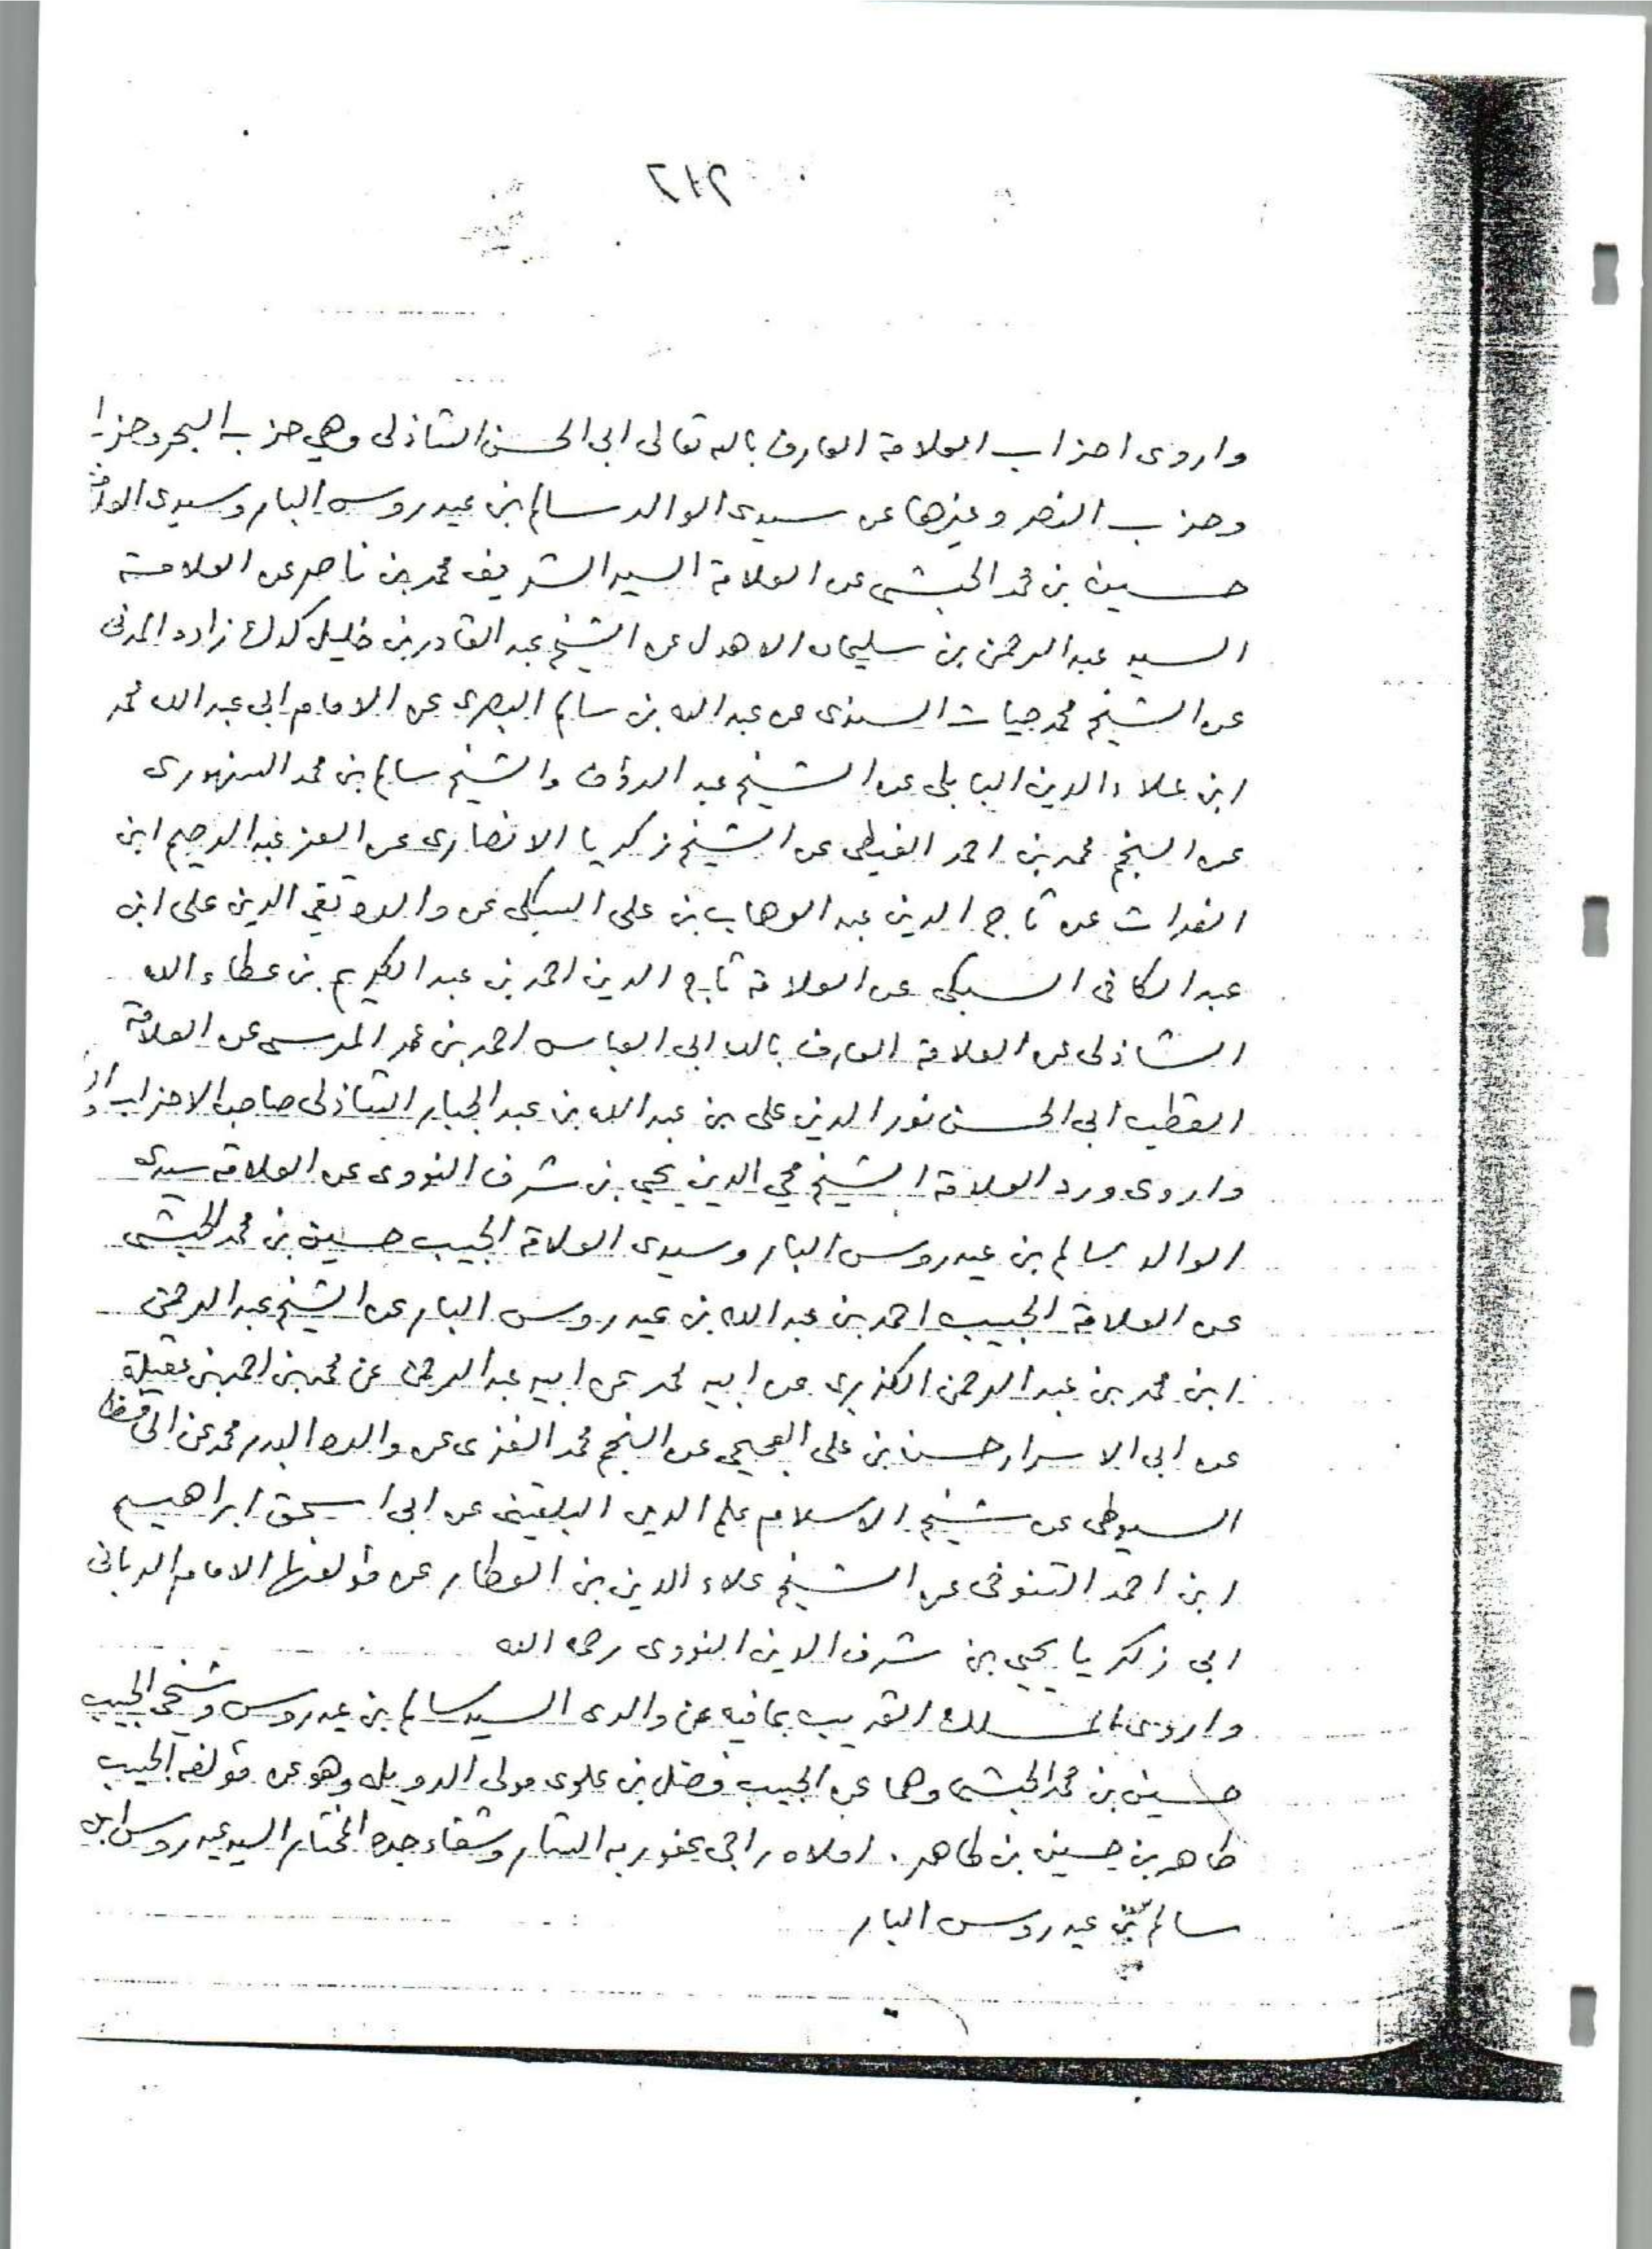 ٢١٢
واروى احزاب العلامة العارف بالله تعالى ابى الحسن الشاذلى وهي حزب البحر وحزب
وحزب النصر وغيرها عن سيدى الوالد سالم بن عيدروس البار وسيدى
حسين بن محمد الحبشى عن العلامة السيد الشريف محمد بن ناصر عن العلامة
السيد عبد الرحمن بن سليمان الاهدل عن الشيخ عبد القادر بن خليل كدك زاده المدنى
عن الشيخ محمد حيات السندى عن عبد الله بن سالم البصرى عن الامام ابى عبد الله محمد
ابن علاء الدين البابلى عن الشيخ عبد الرؤف والشيخ سالم بن محمد السنهورى
عن النجم محمد بن احمد الغيطى عن الشيخ زكريا الانصارى عن العز عبد الرحيم ابن
الفرات عن تاج الدين عبد الوهاب بن على السبكى عن والده تقي الدين على ابن
عبد الكافى السبكى عن العلامة تاج الدين احمد بن عبد الكريم بن عطاء الله
الشاذلى عن العلامة العارف بالله ابى العباس احمد بن عمر المرسى عن العلامة
القطب ابى الحسن نور الدين على بن عبد الله بن عبد الجبار الشاذلى صاحب الاحزاب
واروى ورد العلامة الشيخ محي الدين يحيي بن شرف النووى عن العلامة سيدى
الوالد سالم بن عيدروس البار وسيدى العلامة الحبيب حسين بن محمد الحبشى
عن العلامة الحبيب احمد بن عبد الله بن عيدروس البار عن الشيخ عبد الرحمن
ابن محمد بن عبد الرحمن الكزبرى عن ابيه محمد عن ابيه عبد الرحمن عن محمد بن احمد بن عقيلة
عن ابى الاسرار حسن بن على العجيمى عن النجم محمد الغزى عن والده البدر محمد عن الحافظ
السيوطى عن شيخ الاسلام علم الدين البلقينى عن ابى اسحق ابراهيم
ابن احمد التنوخى عن الشيخ علاء الدين بن العطار عن مؤلفها الامام الربانى
ابى زكريا يحيي بن شرف الدين النووى رحمه الله
واروى المسلك القريب بمافيه عن والدى السيد سالم بن عيدروس وشيخى الحبيب
حسين بن محمد الحبشى وهما عن الحبيب فضل بن علوى مولى الدويله وهو عن مؤلفه الحبيب
طاهر بن حسين بن طاهر . املاه راجى عفو ربه الستار وشفاء جده المختار السيد عيدروس ابن
سالم بن عيدروس البار